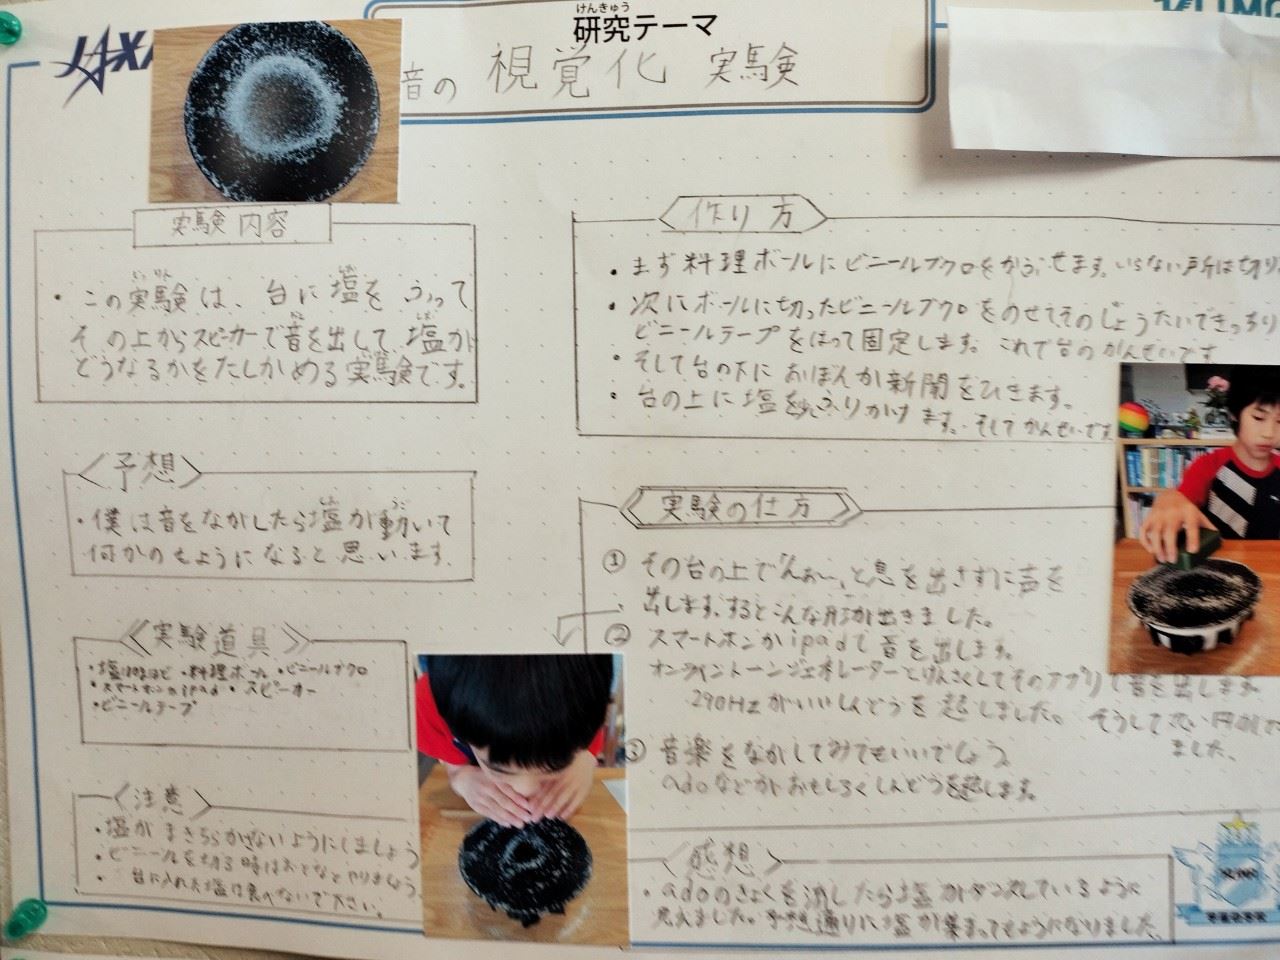 JAXA
けんきゅう
研究テーマ
音の 視覚化 実験
実験内容
・この実験は、台に塩をふって
その上からスピーカーで音を出して、塩が
どうなるかをたしかめる実験です。
予想
・僕は音をながしたら塩が動いて
何かのもようになると思います。
実験道具
・料理ボール ・ビニールブクロ
・スマートホンかipad ・スピーカー
・ビニールテープ
注意
・塩がまきちらかさないようにしましょう
・ビニールを切る時はおとなとやりましょう
・台に入れた塩は食べないで下さい。
作り方
・まず料理ボールにビニールブクロをかぶせます。いらない所は切り
・次にボールに切ったビニールブクロをのせてそのじょうたいできっちり
ビニールテープをはって固定します。これで台のかんせいです
・そして台の下におぼんか新聞をひきます。
・台の上に塩を少しふりかけます。そしてかんせいです
実験の仕方
① その台の上で と息を出さずに声を
出します。するとこんな形が出きました。
② スマートホンかipadで音を出します。
オンライントーンジェネレーターとけんさくしてそのアプリで音を出します。
290Hzがいいしんどうを起しました。そうして 円が
ました。
③ 音楽をながしてみてもいいでしょう。
adoなどがおもしろくしんどうを起します。
感想
・adoのきょくを流したら塩がダンスしているように
見えました。予想通りに塩が集まってもようになりました。